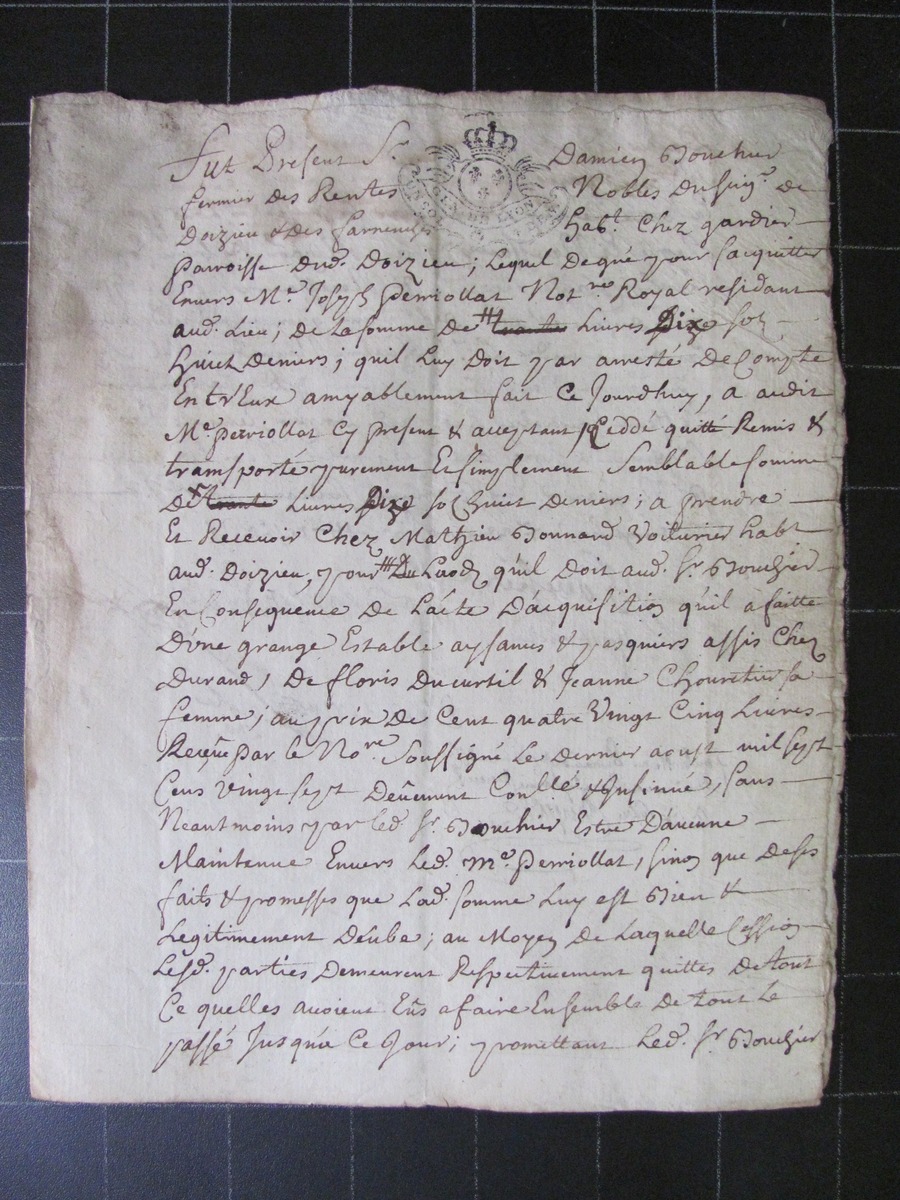 Fut Present Sr. Damien Bouchier
fermier des Rentes Nobles du seigr. de
Doizieu & des farnenches habt. Chez gardier
Parroisse dud. Doizieu ; Lequel de gré pour sacquitter
Envers Me. Joseph Perriollat Notre. Royal residant
aud. Lieu ; de La somme de trante Livres Dix sols
huict deniers ; quil Luy doit par arresté de Compte
Entr'Eux amyablement fait Ce Jourdhuy, a audit
Me. perriollat Cy present & acceptant, Ceddé quitté Remis &
transporté purement Et simplement Semblable somme
de trante Livres Dix sols huict deniers ; a prendre
Et Recevoir Chez Mathieu Bonnard Voiturier habt.
aud. Doizieu, pour Du Laods qu'il Doit aud. Sr. Bouchier
En Conséquence de L'acte D'acquisition qu'il a faitte
D'une grange Estable aysances & pasquiers assis Chez
Durand, De floris Ducurtil & Jeanne Chouretier sa
femme ; au prix de Cent quatre Vingt Cinq Livres
Reçeu par le Nore. Soussigné Le dernier aoust mil sept
Cens Vingt sept Deüement Conllé & Insinué, sans
Neantmoins par led. Sr. Bouchier Estre D'aucune
Maintenue Envers Led. Me. Perriollat, sinon que de ses
faits & promesses que Lad. somme Luy est Bien &
Legitimement Deube ; au Moyen de Laquelle Cession
Lesd. parties Demeurent Respectivement quittes de tout
Ce quelles avoient Eus a faire Ensemble de tout Le
passé Jusqu'a Ce Jour ; promettant Led. Sr. Bouchier